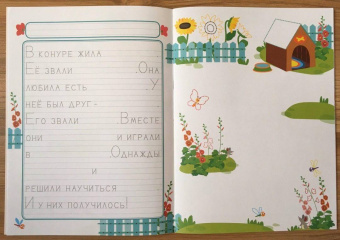 В КОНУРЕ ЖИЛА
ЕЁ ЗВАЛИ .ОНА
ЛЮБИЛА ЕСТЬ .У
НЕЁ БЫЛ ДРУГ -
ЕГО ЗВАЛИ .ВМЕСТЕ
ОНИ И ИГРАЛИ
В .ОДНАЖДЫ
И
РЕШИЛИ НАУЧИТЬСЯ
И У НИХ ПОЛУЧИЛОСЬ!